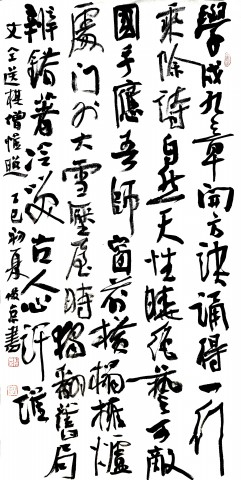 學成九章開方訣誦得一行
乘除詩自然天性曉絕藝可敵
國手應吾師窗前橫榻擁爐
處門外大雪壓屋時獨翻舊局
辨錯著冷笑古人心許誰
文仝送棋僧惟照 丁巳初夏 俊京書